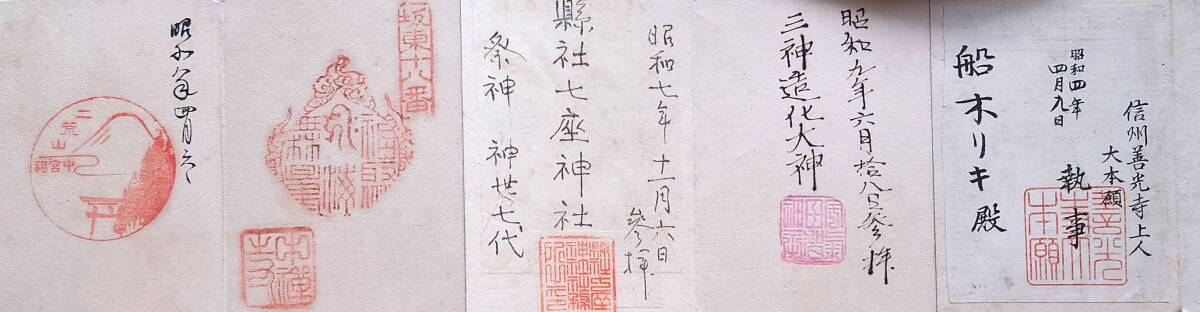 信州善光寺上人
大本願
執事
昭和四年
四月九日
船木リキ殿
善光寺
大本願
昭和九年六月拾八日参拝
三神造化大神
昭和七年十一月六日
参拝
縣社七座神社
祭神 神世七代
坂東十八番
中禅寺
四月
二荒山
中宮祠